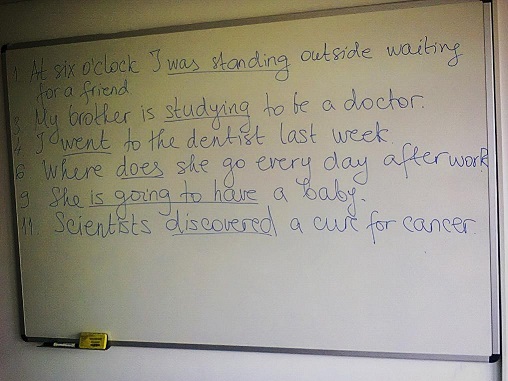 1 At six o'clock I was standing outside waiting
for a friend
3 My brother is studying to be a doctor.
4 I went to the dentist last week.
6 Where does she go every day after work
9 She is going to have a baby.
11. Scientists discovered a cure for cancer